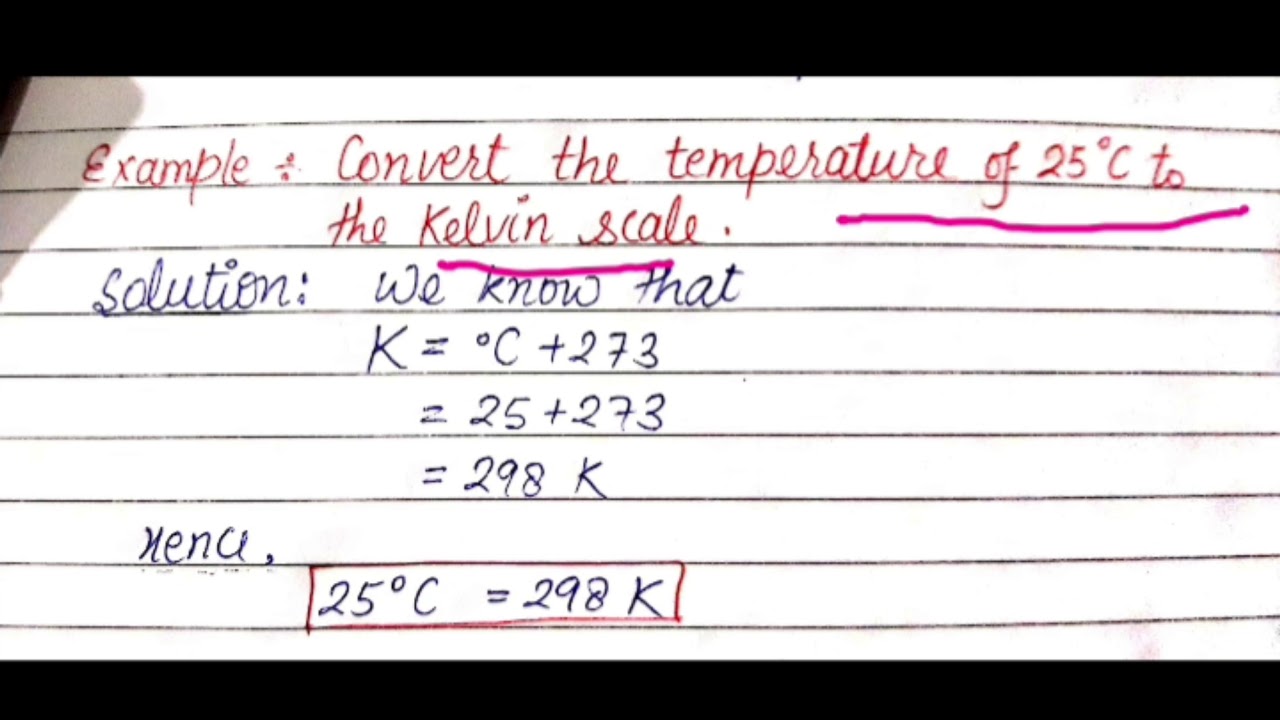 Example : Convert the temperature of 25°C to
the Kelvin scale.
Solution: We know that
K = °C + 273
= 25 + 273
= 298 K
Hence,
25°C = 298 K